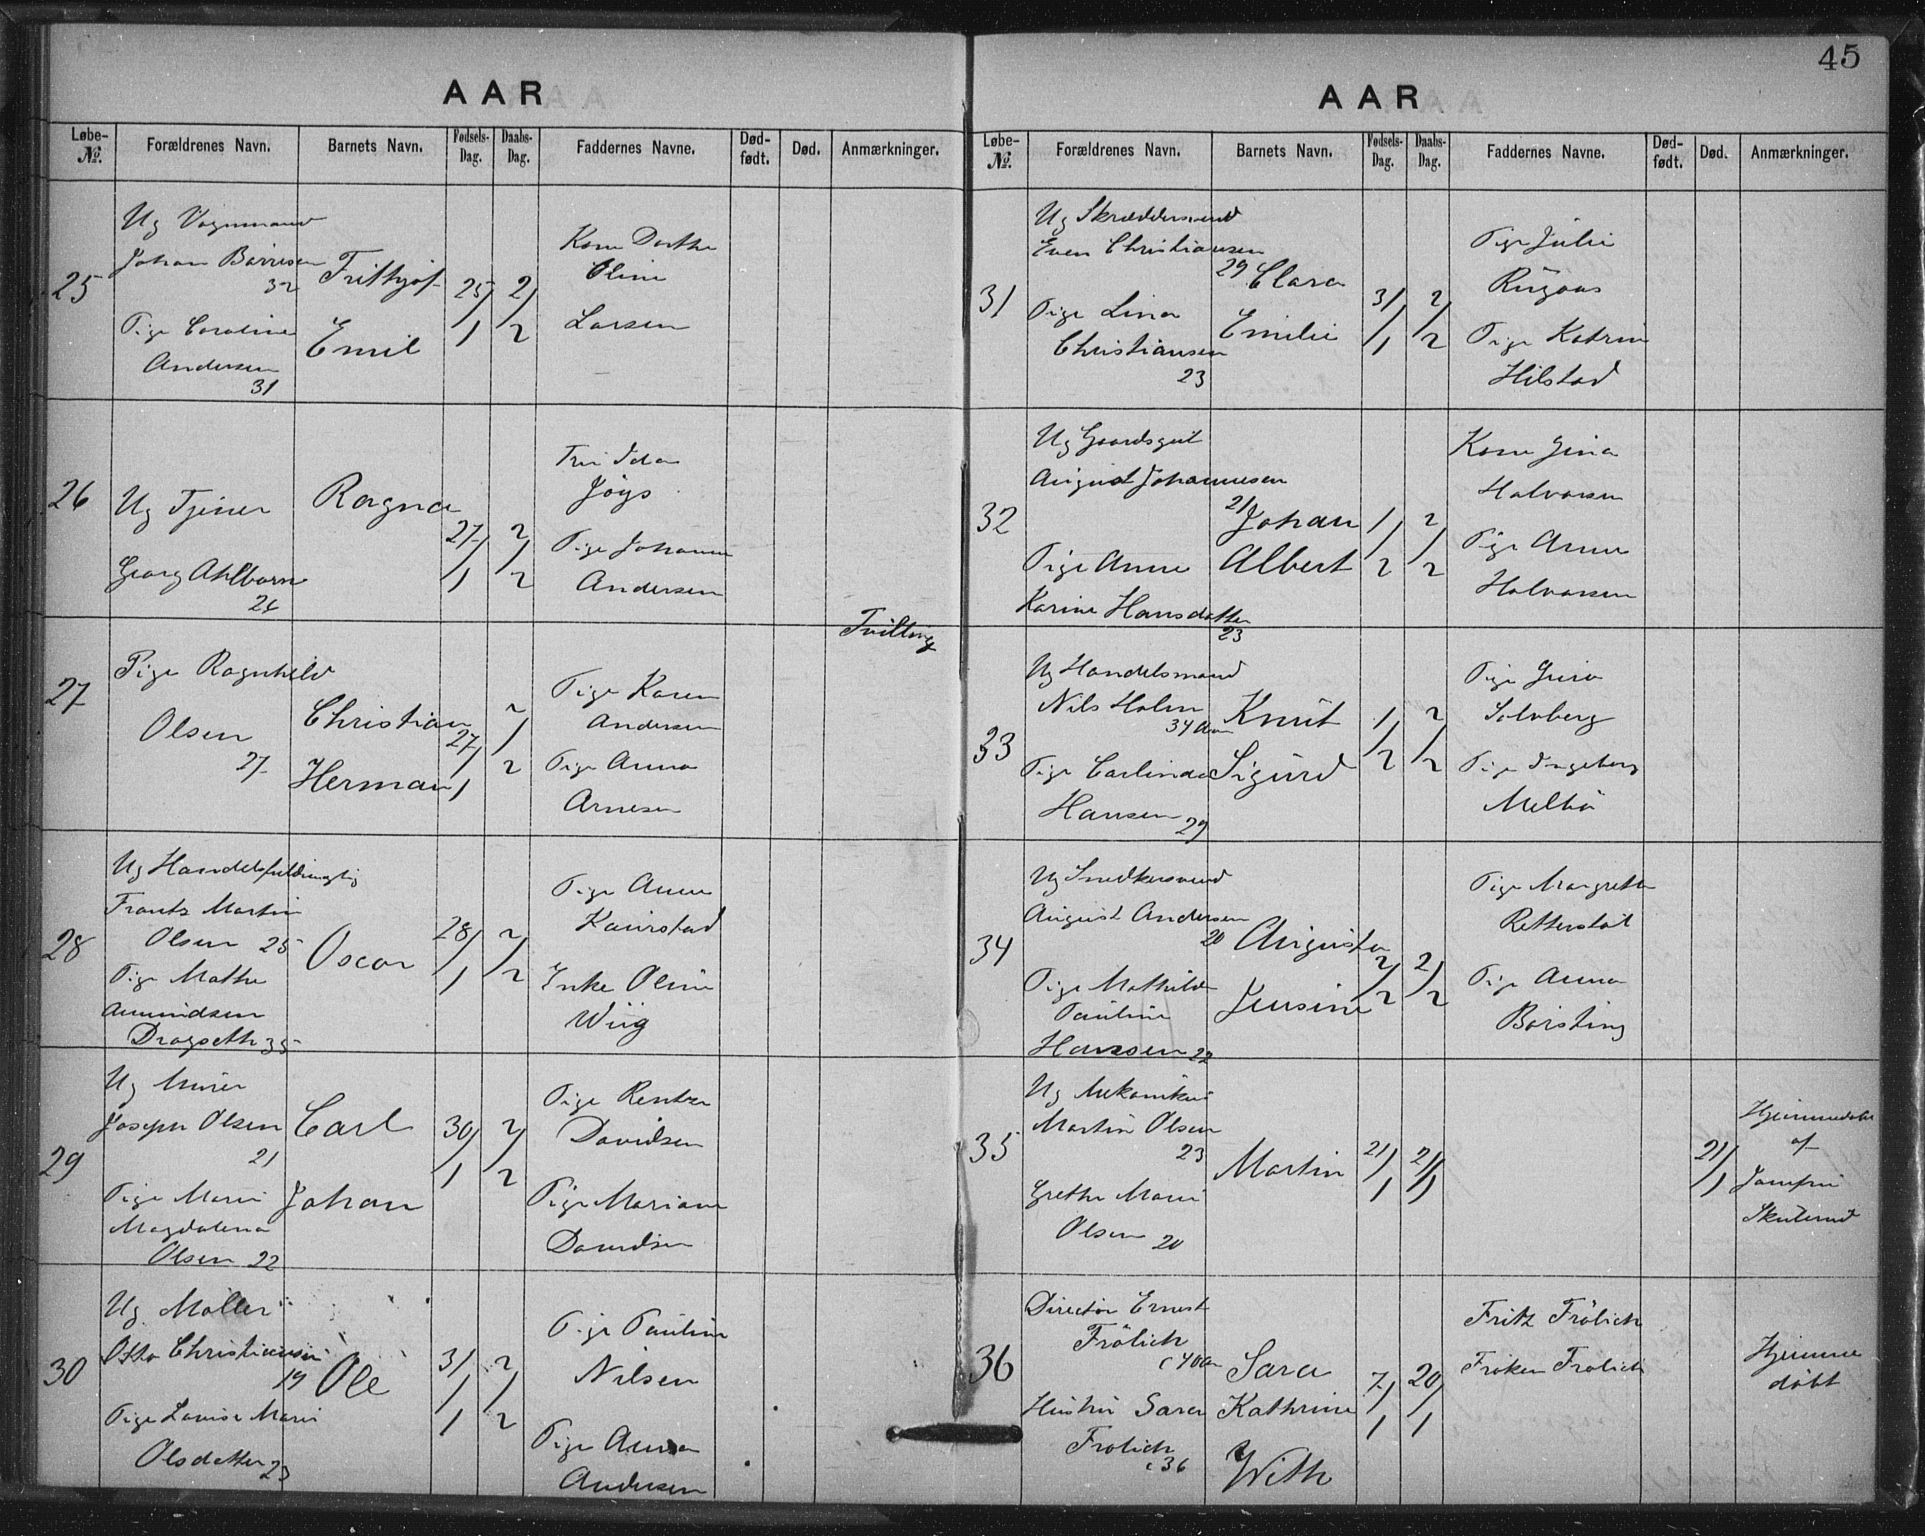 45
AAR
Løbe-№.
Forældrenes Navn.
Barnets Navn.
Fødsels-Dag.
Daabs-Dag.
Faddernes Navne.
Død-født.
Død.
Anmærkninger.
25
Ug Vognmand
Johan Børresen
32
Pige Caroline
Andersen
31
Frithjof
Emil
25/1
2/2
Kone Dorthe
Oline
Larsen
26
Ug Tjener
Georg Ahlborn
26
Ragna
27/1
2/2
Fru Ida
Jøys
Pige Johanne
Andersen
Tvilling
27
Pige Ragnhild
Olsen
27
Christian
Herman
27/1
2/2
Pige Karen
Andersen
Pige Anna
Arnesen
28
Ug Handelsfuldmægtig
Frantz Martin
Olsen 25
Pige Mathe
Amundsen
Dragseth 35
Oscar
28/1
2/2
Pige Anne
Kaurstad
Enke Oline
Wiig
29
Ug Murer
Joseph Olsen
21
Pige Marie
Magdalena
Olsen 22
Carl
Johan
30/1
2/2
Pige
Davidsen
Pige Mariane
Davidsen
30
Ug Møller
Otto Christiansen
19
Pige Lovise Marie
Olsdatter 23
Ole
31/1
2/2
Pige Pauline
Nilsen
Pige Anna
Andersen
AAR
Løbe-№.
Forældrenes Navn.
Barnets Navn.
Fødsels-Dag.
Daabs-Dag.
Faddernes Navne.
Død-født.
Død.
Anmærkninger.
31
Ug Skræddersvend
Even Christiansen
29
Pige Lina
Christiansen
23
Clara
Emilie
31/1
2/2
Pige Julie
Pige Katrine
Hilstad
32
Ug Gaardsgut
August Johannesen
21
Pige Anne
Karine Hansdatter
23
Johan
Albert
1/2
2/2
Kone Gina
Halvorsen
Pige Anne
Halvorsen
33
Ug Handelsmand
Nils Holm
34 Aar
Pige Carlinda
Hansen 29
Knut
Sigurd
1/2
2/2
Pige Guro
Solvberg
Pige Ingeborg
Melbö
34
Ug Snedkersvend
August Andersen
20
Pige Mathilde
Pauline
Hansen 22
Augusta
Jensine
2/2
2/2
Pige Margrethe
Retterstøl
Pige Anna
Børsting
35
Ug Mekaniker
Martin Olsen
23
Grethe Marie
Olsen 20
Martin
21/1
21/1
21/1
Hjemmedøbt
af
Jomfru
Skulerud
36
Director Ernest
Frölich
c 40 Aar
Hustru Sara
Frølich
c 36
Sara
Kathrine
With
7/1
20/1
Fritz Frölich
Frøken Frølich
Hjemme
døbt